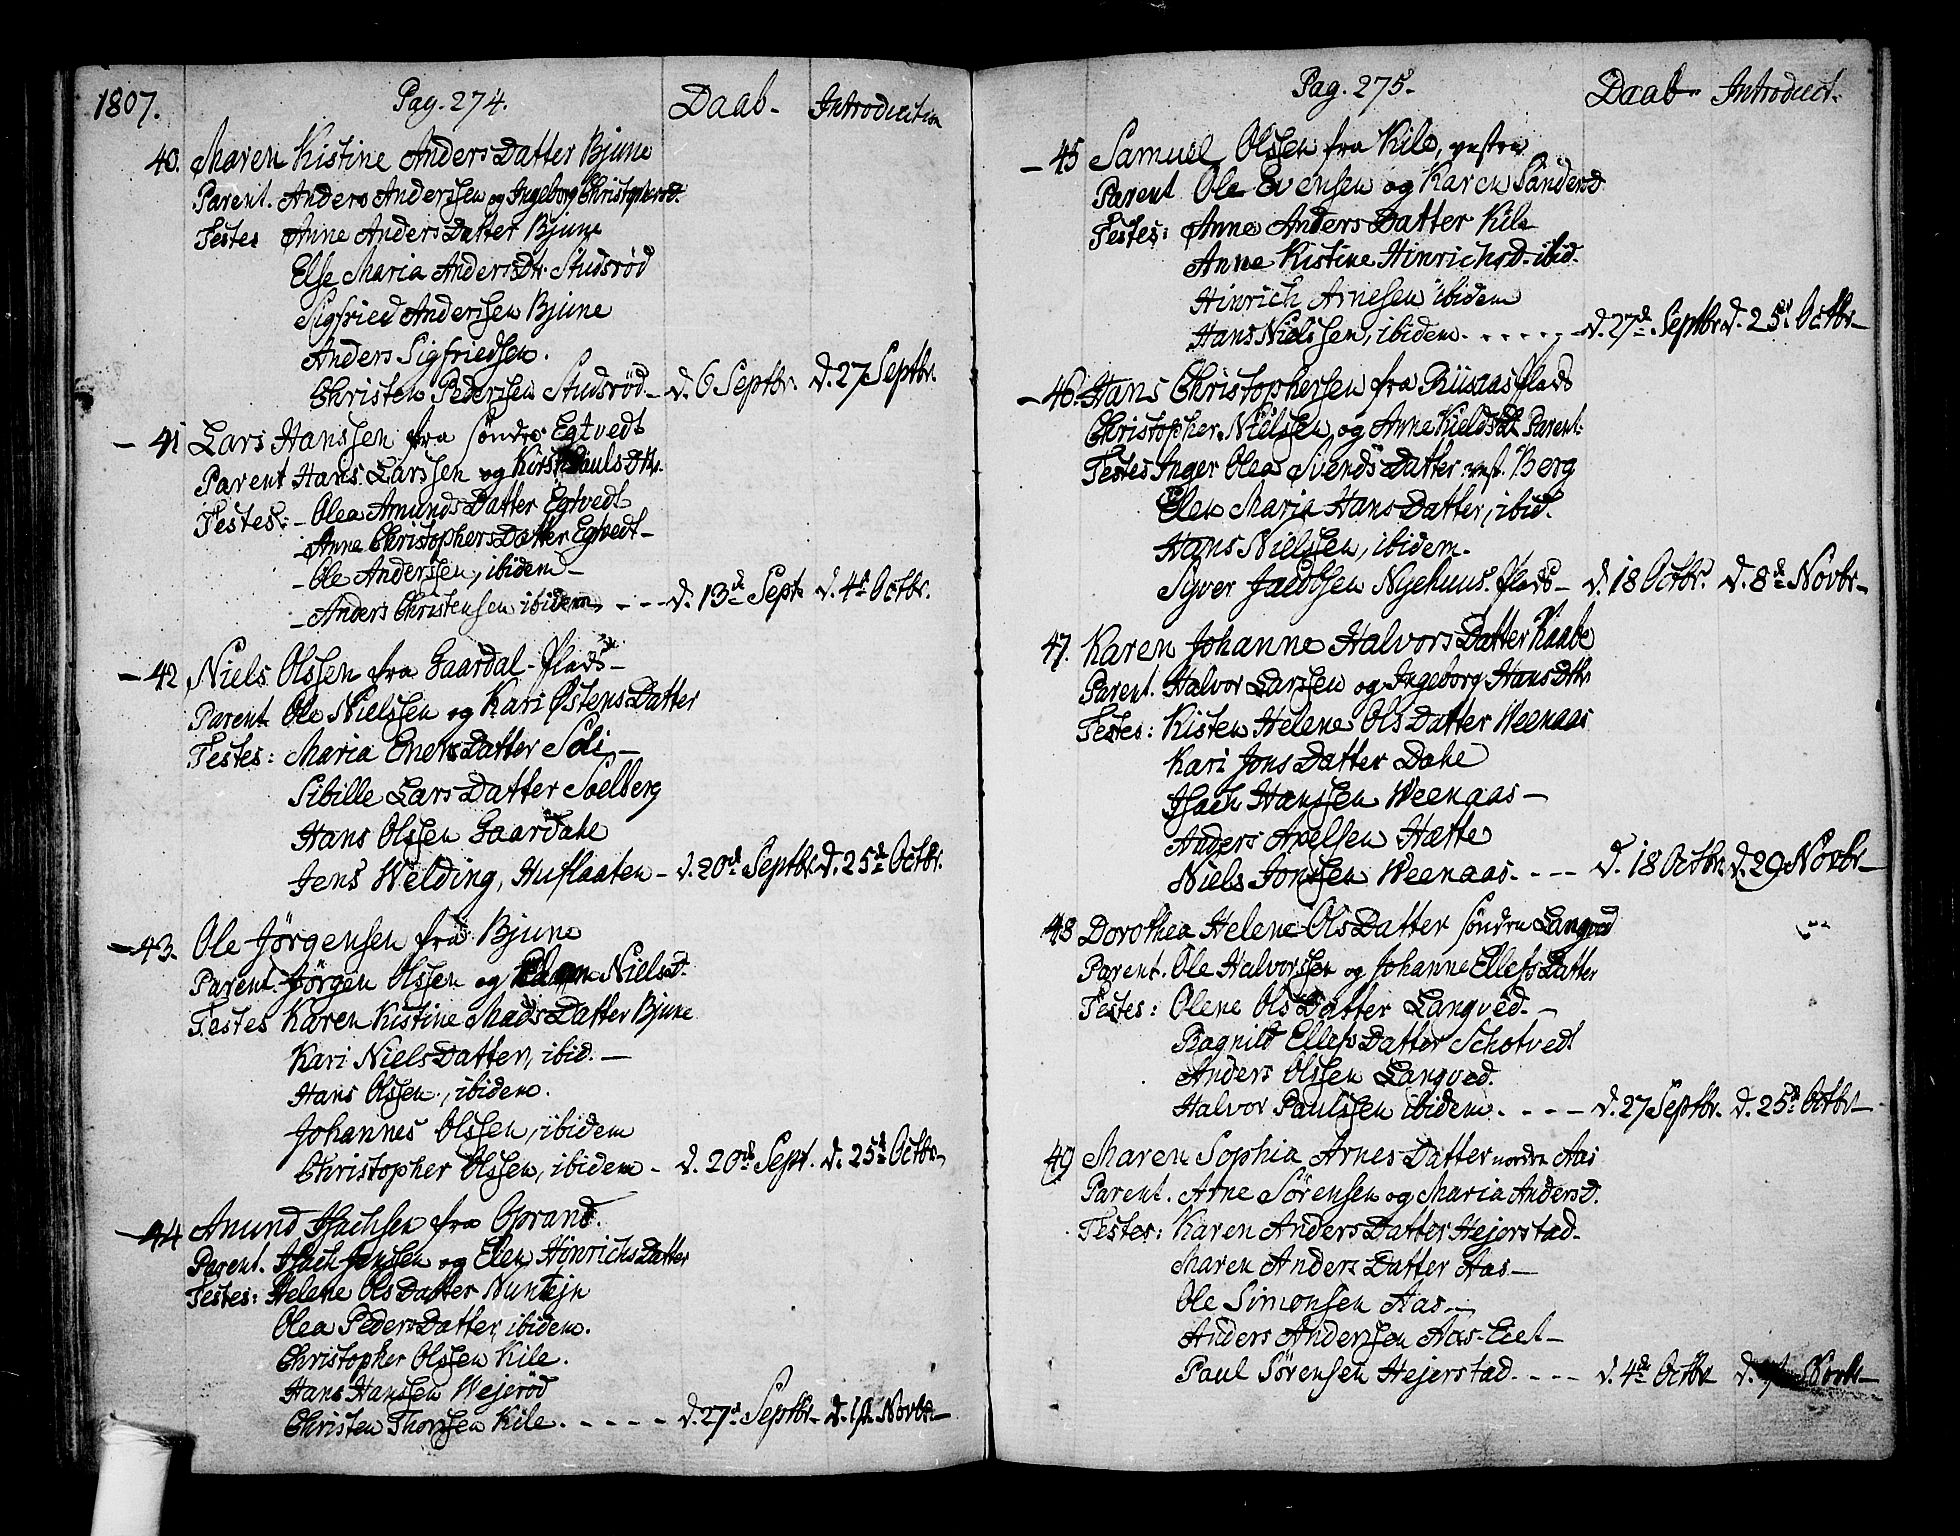 1807.
Pag. 274.
Daab-
Introduction
40. Maren Kistine Anders Datter Bjune
Parent. Anders Anderssen og Ingeborg Christophersd.
Testes Anne Anders Datter Bjune
Else Maria Anders Dtr. Studsrød
Sigfried Anderssen Bjune
Anders Sigfriedsen.
Christen Pederssen Studsrød - d. 6 Septbr. d. 27 Septbr.
- 41 Lars Hanssen fra søndre Egtvedt
Parent Hans Larssen og Pauls Dtr.
Testes: - Olea Amunds Datter Egtvedt
- Anne Christophers Datter Egtvedt -
- Ole Anderssen, ibidem -
- Anders Christensen ibidem - - - d. 13de Sept. d. 4de Octbr.
- 42 Niels Olssen fra Gaardal-plads -
Parent Ole Nielssen og Kari Østens Datter
Testes: Maria Eners Datter Soli -
Sibille Lars Datter Soelberg
Hans Olssen Gaardahe
Jens Welding, Huflaaten - d. 20de Septbr. d. 25de Octbr.
- 43. Ole Jörgensen fra Bjune
Parent. Jörgen Olssen og Nielsd.
Testes Karen Kistine Mads Datter Bjune
Kari Niels Datter, ibid. -
Hans Olssen, ibidem.
Johannes Olssen, ibidem
Christopher Olssen, ibidem - d. 20de Sept. d. 25de Octbr.
- 44 Amund Isachsen fra Oprand.
Parent. Isach Jenssen og Elen Hinrichs Datter
Testes: Helene Ols Datter Nuntejn
Olea Peders Datter, ibidem.
Christopher Olssen Kile.
Hans Hanssen Wejerød
Christen Thorssen Kile. - - - - - d. 27de Septbr. - d. 1ste Novbr. -
Pag. 275.
Daab - Introduct.
- 45 Samuel Olssen fra Kile, vestre
Parent Ole Evensen og Karen Sanderd.
Testes: Anne Anders Datter Kile
Anne Kistine Hinrichsd. ibid.
Hinrich Arnesen ibidem
Hans Nielssen, ibidem. - - - - - d. 27de Septbr. d. 25de Octbr. -
- 46. Hans Christophersen fra Riisaasplads
Christopher Nielssen og Anne Kields Dr. Parent.
Testes Inger Olea Svends Datter vest. Berg
Elen Maria Hans Datter, ibid.
Hans Nielssen, ibidem.
Syver Jacobsen Nyehuus-plads - d. 18 Octbr. d. 8de Novbr. -
47. Karen Johanne Halvors Datter Raabe
Parent. Halvor Larssen og Ingeborg Hans Dtr.
Testes: Kisten Helene Ols Datter Weenaas
Kari Jons Datter Dahe
Isach Hanssen Weenaas -
Anders Axelsen Hætte
Niels Jonssen Weenaas. - - - d. 18 Octbr. d. 29 Novbr. -
48 Dorothea Helene Ols Datter søndre Langved
Parent. Ole Halvorssen og Johanne Ellefs Datter
Testes: Olene Ols Datter Langved. -
Ragnild Ellefs Datter Schotvedt
Anders Olssen Langved.
Halvor Paulssen ibidem. - - - d. 27 Septbr. d. 25de Octbr. -
49 Maren Sophia Arnes Datter nordre Aas
Parent. Arne Sörensen og Maria Andersd.
Testes: Karen Anders Datter Hejerstad -
Maren Anders Datter Aas -
Ole Simonsen Aas -
Anders Anderssen Aas-Eiet -
Paul Sörensen Hejerstad. - - - d. 4de Octbr. d. Novbr. -